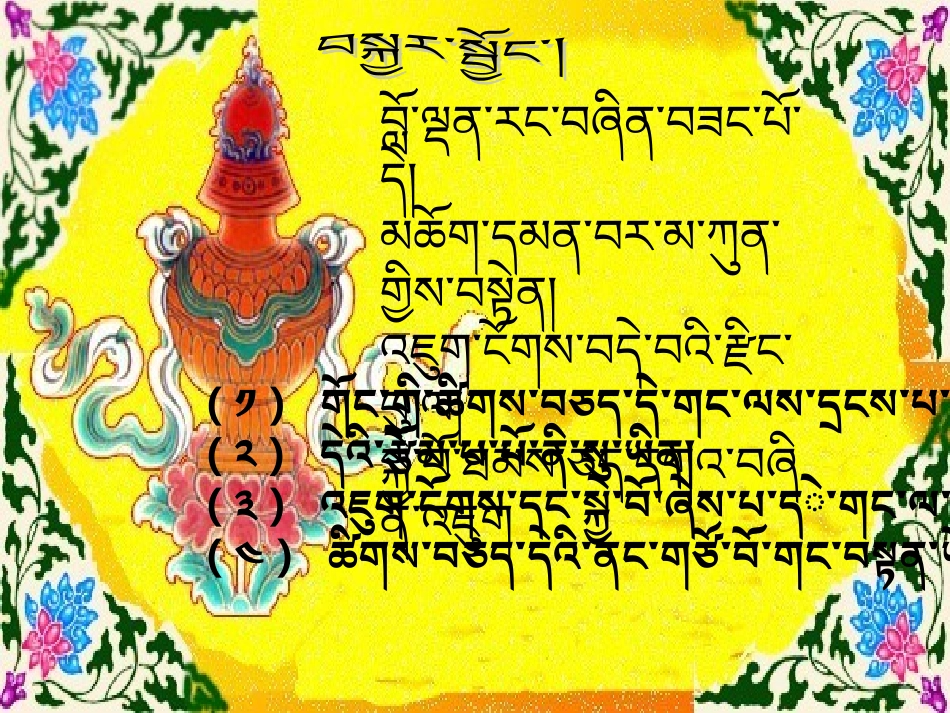 བསྐྱར་སྦྱོང་།
བློ་ལྡན་རང་བཞིན་བཟང་པོ་
དེ།
མཆོག་དམན་བར་མ་ཀུན་
གྱིས་བསྟེན།
འཇུག་ངོགས་བདེ་བའི་རྫིང་
(༡) གོང་གི་ཚིགས་བཅད་དེ་གང་ལས་དྲངས་པ་
(༢) དེའི་རྩོམ་པ་པོ་ནི་སུ་ཡིན།
སྐྱེ་བོ་ཐམས་ཅད་དགའ་བཞི
(༣) འཇུག་ངོགས་དང་སྐྱེ་བོ་ཞེས་པ་དེ་གང་ལ་
ན་འཇུག
(༤) ཚིགས་བཅད་དེའི་ནང་གཙོ་བོ་གང་བསྟན་